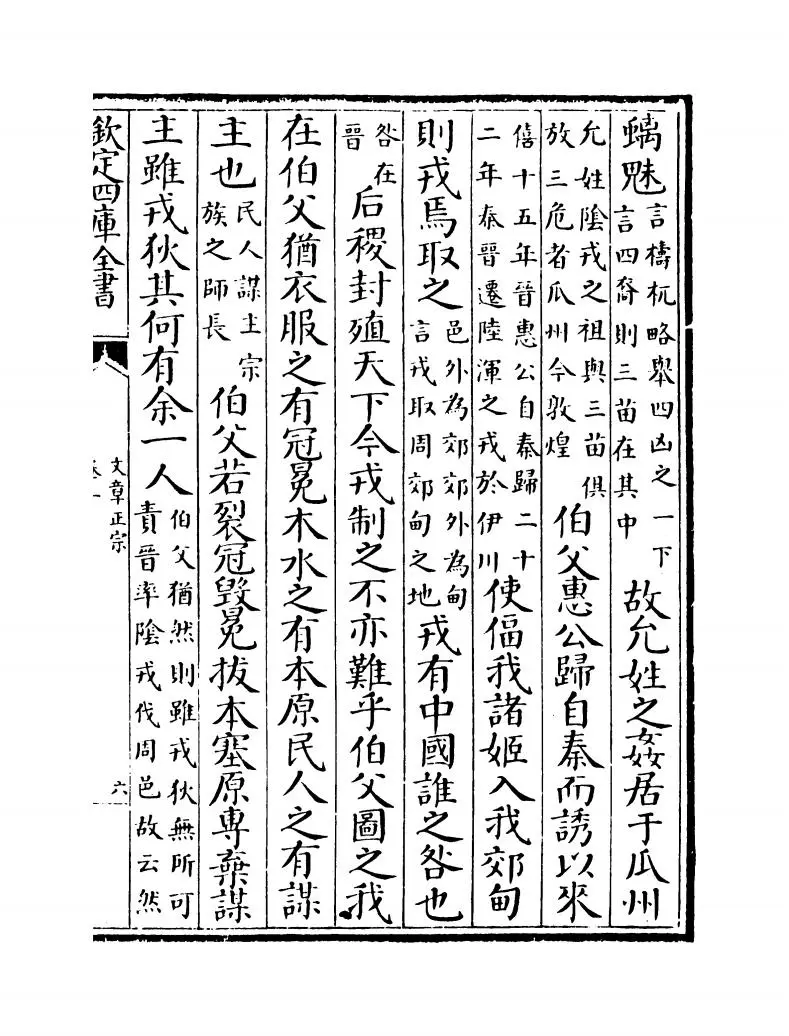 螭魅言檮杌略舉四凶之一下言四裔則三苗在其中故允姓之姦居于瓜州
允姓陰戎之祖與三苗俱放三危者瓜州今敦煌伯父惠公歸自秦而誘以來
僖十五年晉惠公自秦歸二十二年秦晉遷陸渾之戎於伊川使偪我諸姬入我郊甸
則戎焉取之邑外為郊郊外為甸言戎取周郊甸之地戎有中國誰之咎也
咎在晉后稷封殖天下今戎制之不亦難乎伯父圖之我
在伯父猶衣服之有冠冕木水之有本原民人之有謀
主也民人謀主宗族之師長伯父若裂冠毀冕拔本塞原專棄謀
主雖戎狄其何有余一人伯父猶然則雖戎狄無所可責晉率陰戎伐周邑故云然
欽定四庫全書
文章正宗
六